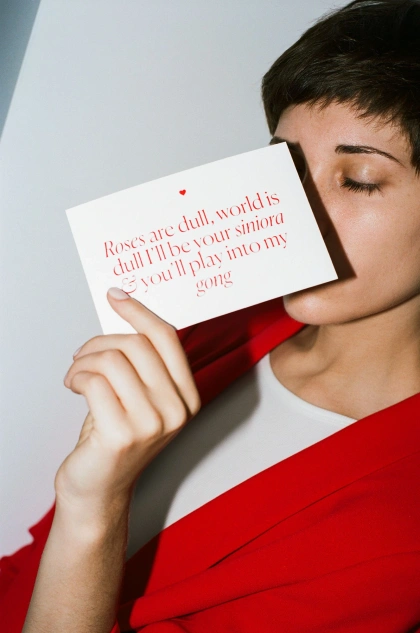 Roses are dull, world is
dull I'll be your siniora
& you'll play into my
gong